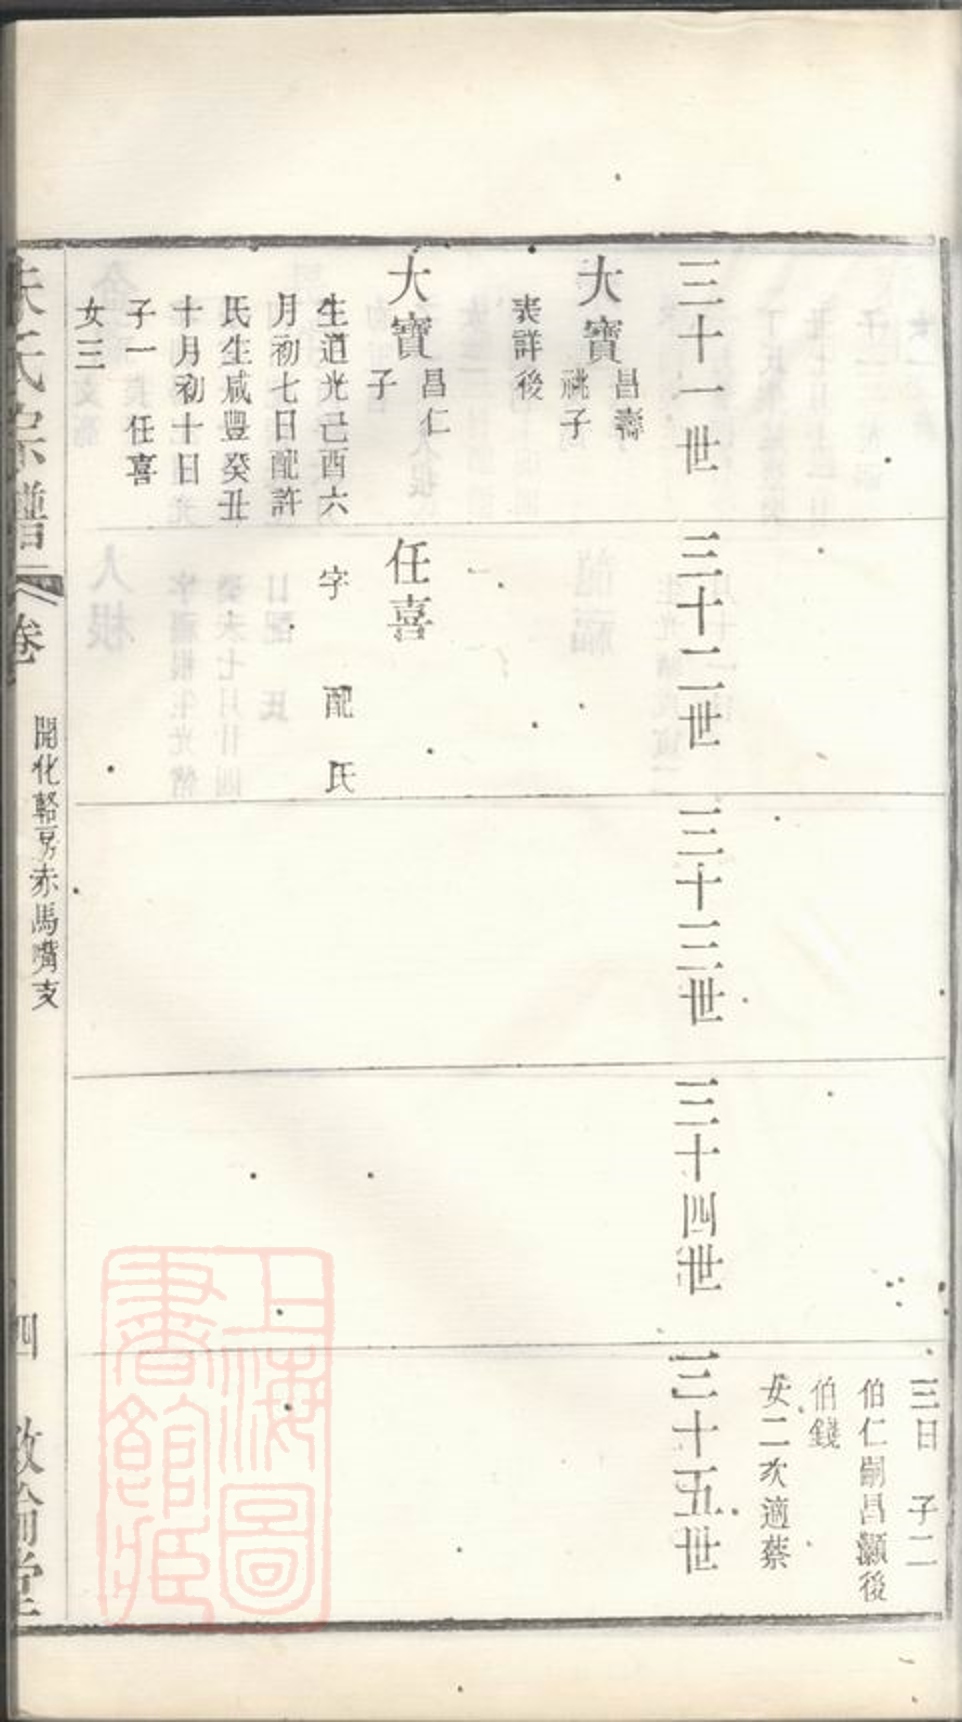 三日　子二
伯仁嗣昌灝後
伯錢
女二次適蔡
三十一世
三十二世
三十三世
三十四世
三十五世
大寶
昌壽
祧子
表詳後
大寶
昌仁
子
生道光己酉六
月初七日配許
氏生咸豐癸丑
十月初十日
子一　任喜
女三
任喜
字　配　氏
朱氏宗譜
卷
開化輅房赤馬嘴支
四
敦倫堂
上海圖
書館藏